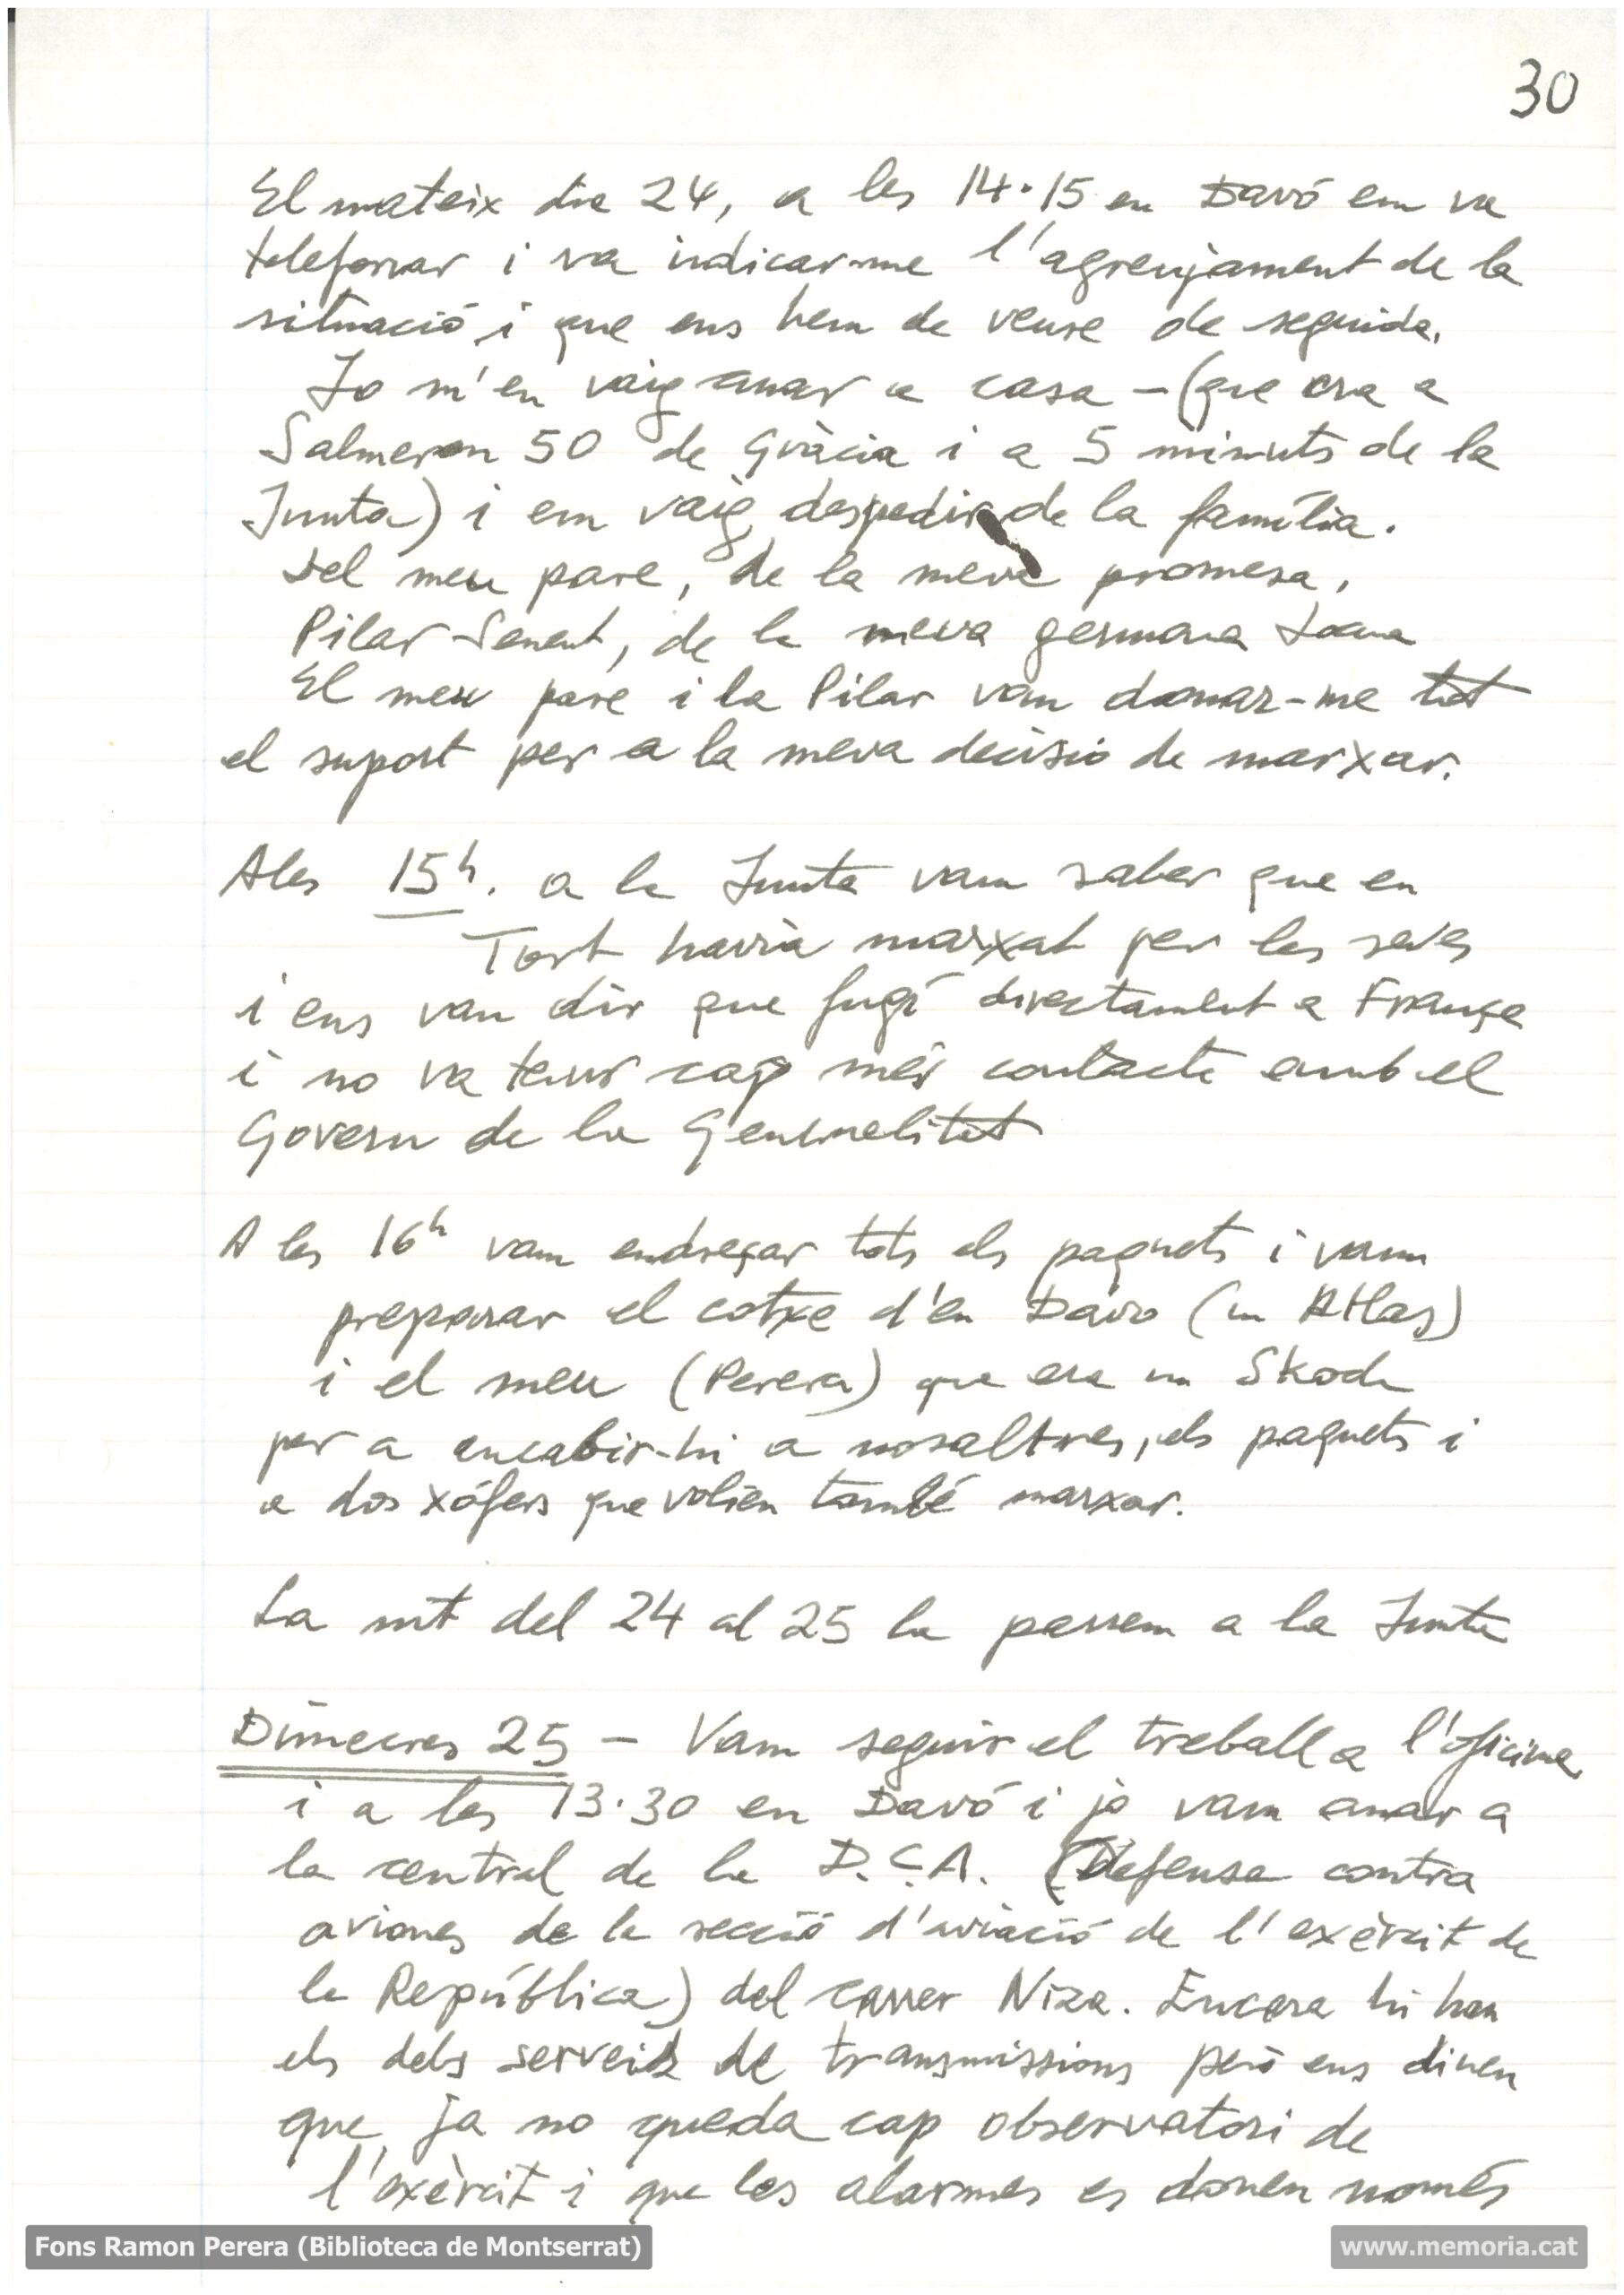 30
El mateix dia 24, a les 14·15 en Davó em va
telefonar i va indicar-me l'agreujament de la
situació i que ens hem de veure de seguida.
Jo m'en vaig anar a casa – (que era a
Salmeron 50 de Gràcia i a 5 minuts de la
Junta) i em vaig despedir de la família.
Del meu pare, de la meva promesa,
Pilar Senent, de la meva germana Joana
El meu pare i la Pilar van donar-me tot
el suport per a la meva decisio de marxar.
A les 15h. a la Junta vam saber que en
Tort havia marxat per les seves
i ens van dir que fugí directament a França
i no va tenir cap més contacte amb el
Govern de la Generalitat
A les 16h vam endreçar tots els paquets i vam
preparar el cotxe d'en Davo (un Atlas)
i el meu (Perera) que era un Skoda
per a encabir-hi a nosaltres, els paquets i
a dos xófers que volien també marxar.
La nit del 24 al 25 la passem a la Junta
Dimecres 25 – Vam seguir el treball a l'oficina
i a les 13·30 en Davó i jo vam anar a
la central de la D.C.A. (Defensa contra
aviones de la secció d'aviació de l'exèrcit de
la República) del carrer Niza. Encara hi han
els dels serveis de transmissions però ens diuen
que ja no queda cap observatori de
l'exèrcit i que les alarmes es donen només
Fons Ramon Perera (Biblioteca de Montserrat)
www.memoria.cat